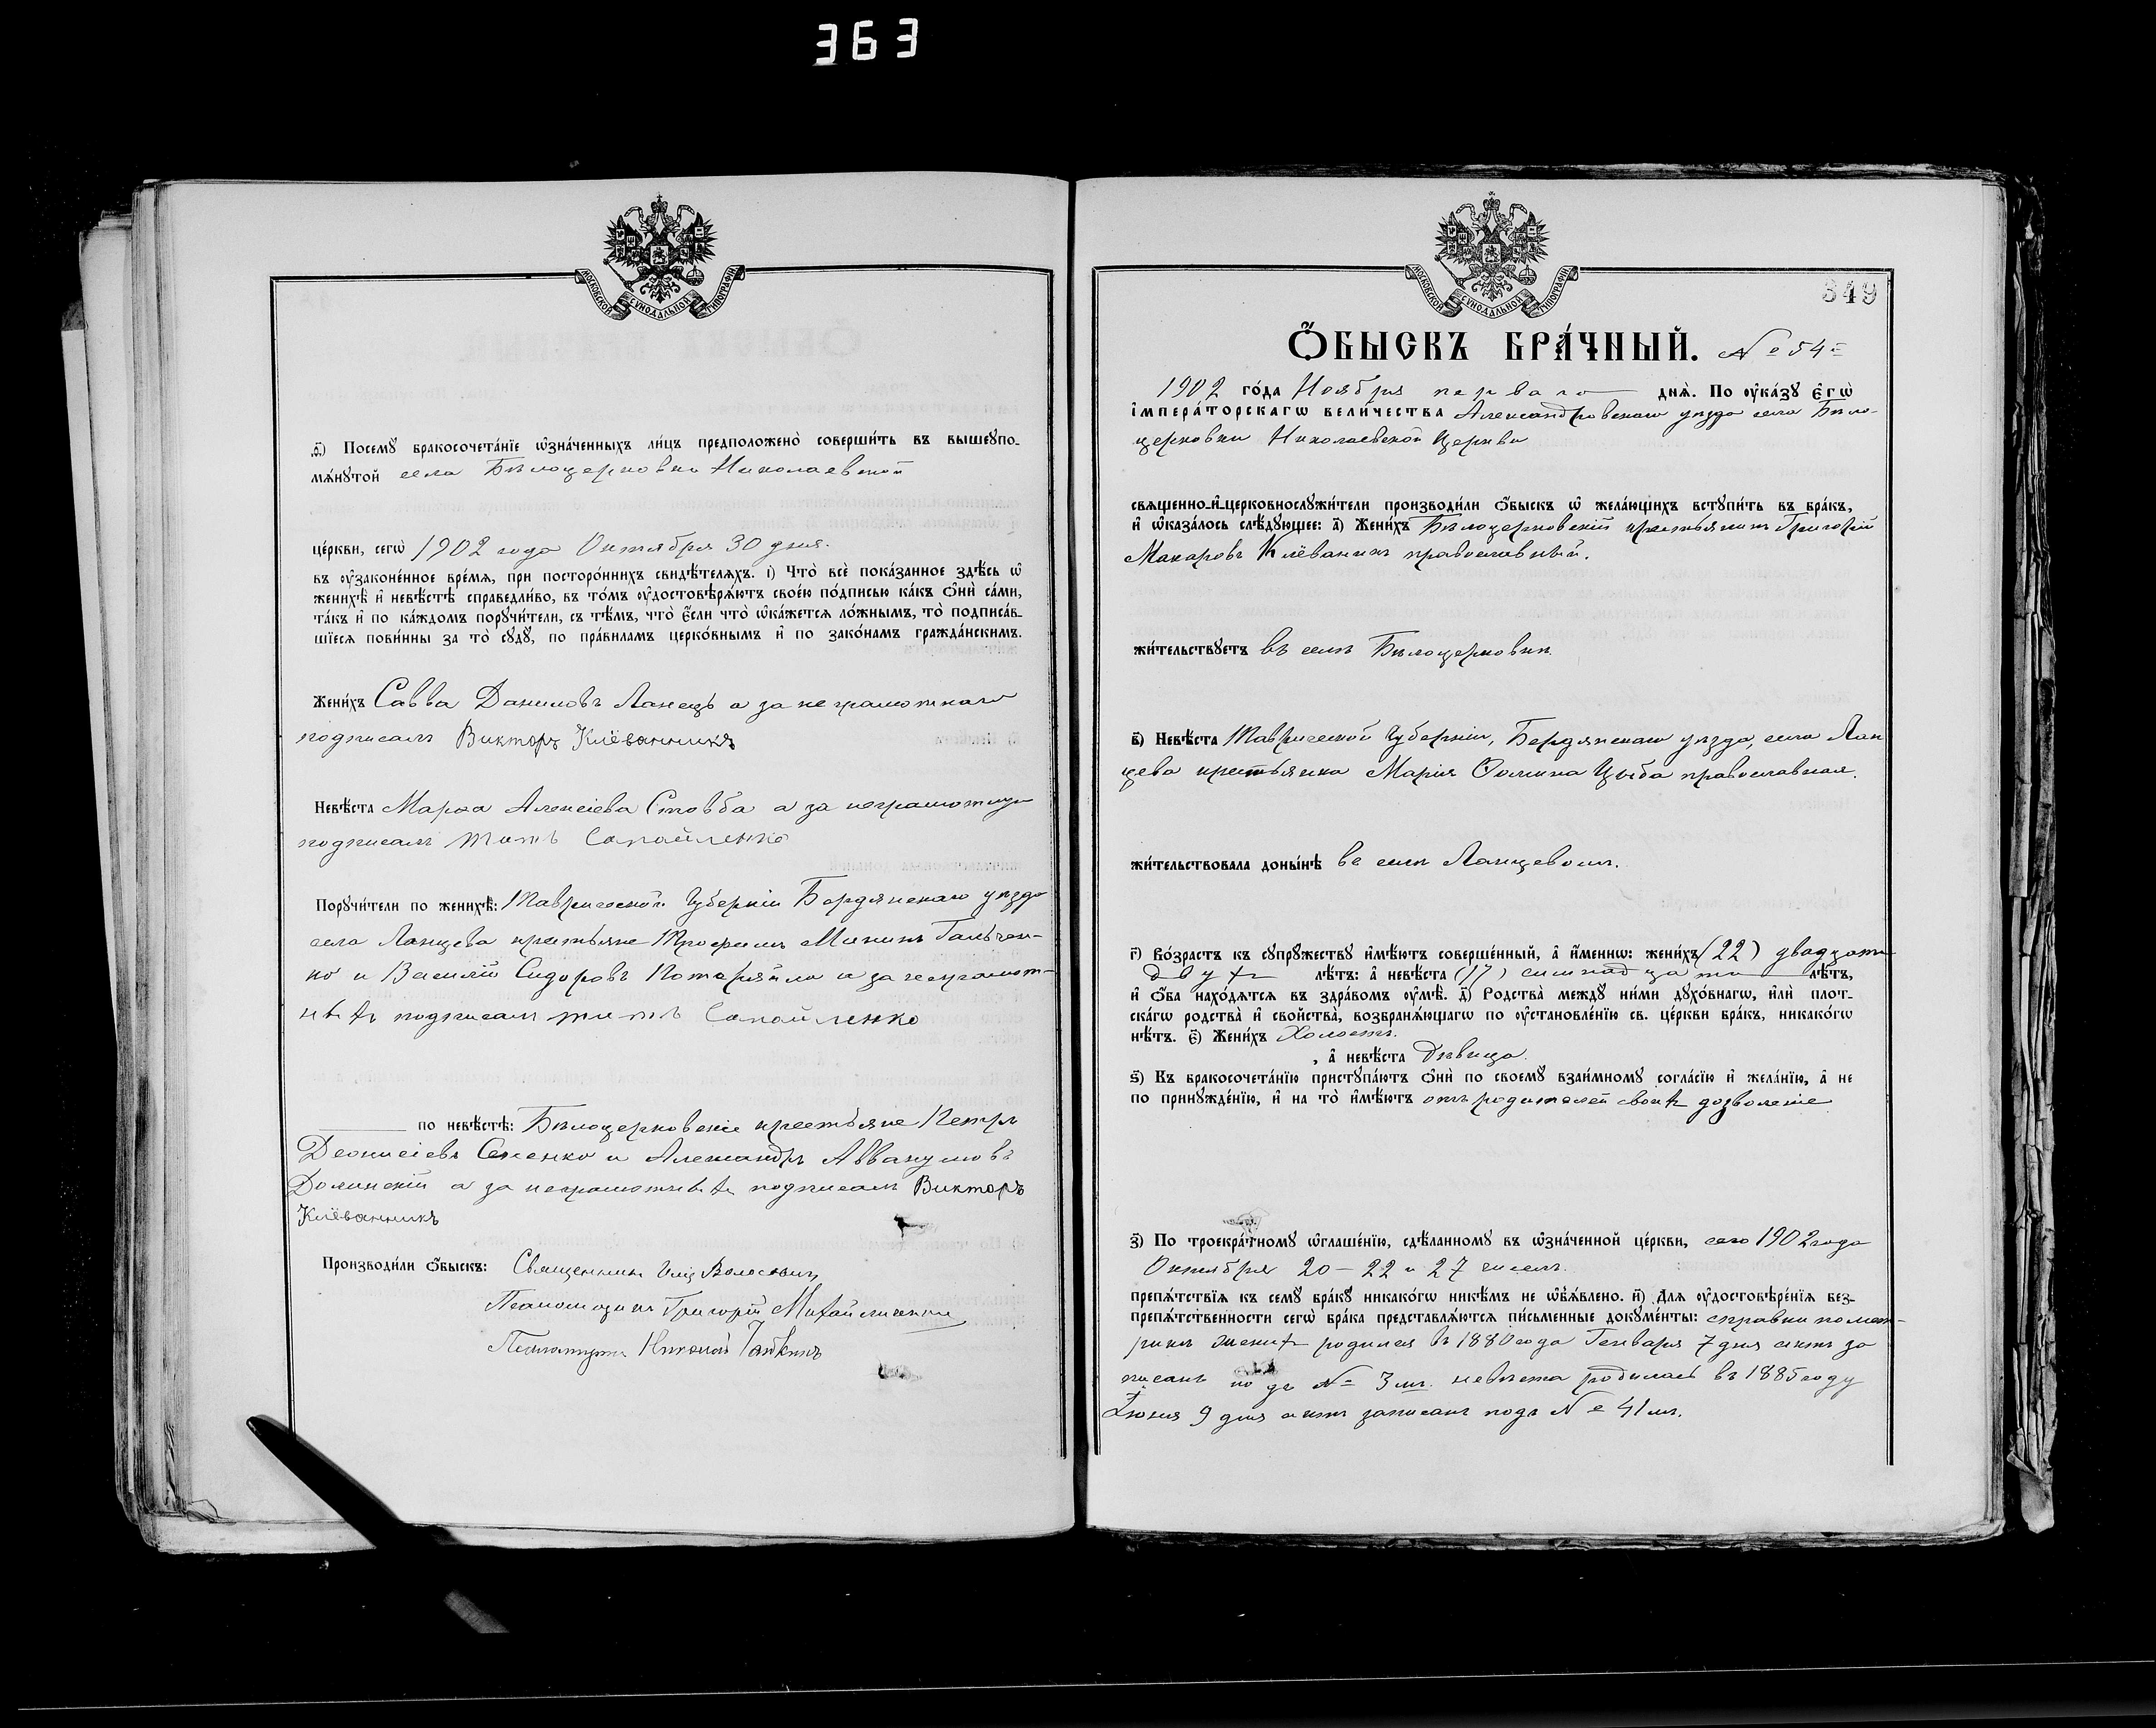 363
МОСКОВСКОЙ СѴНОДАЛЬНОЙ ТИПОГРАФІИ
ѳ҃) Посемꙋ̀ бракосочета́нїе ѡ҆зна́ченныхъ ли́цъ предположено̀ соверши́ть въ вышеꙋпо-
мѧ́нꙋтой села Бѣлоцерковки Николаевской
це́ркви, сегѡ̀ 1902 года Октября 30 дня.
въ ᲂу҆законе́нное вре́мѧ, при посторо́ннихъ свидѣ́телѧхъ. і҃) Что̀ всѐ пока́занное здѣ́сь ѡ҆
женихѣ̀ и҆ невѣ́стѣ справедли́во, въ то́мъ ᲂу҆достовѣрѧ́ютъ свое́ю по́дписью ка́къ ѻ҆нѝ са́ми,
та́къ и҆ по ка́ждомъ порꙋчи́тели, съ тѣ́мъ, что̀ є҆́сли что̀ ѡ҆ка́жетсѧ ло́жнымъ, то̀ подписа́в-
шїесѧ пови́нны за то̀ сꙋдꙋ̀, по пра́виламъ церко́внымъ и҆ по зако́намъ гражда́нскимъ.
Жени́хъ Савва Даниловъ Ланецъ а за неграмотнаго
подписалъ Викторъ Клёванникъ
Невѣ́ста Марѳа Алексіева Стовба а за неграмотную
подписалъ Титъ Самойленко
Порꙋчи́тели по женихѣ̀: Таврической Губерніи Бердянскаго уѣзда
села Ланцева крестьяне Трофимъ Мининъ Гальчен-
ко и Василій Сидоровъ а за неграмот-
ныхъ подписалъ Титъ Самойленко
по невѣ́стѣ: Бѣлоцерковскіе крестьяне Петръ
Деонисіевъ Семенко и Александръ Аввакумовъ
Долинскій а за неграмотныхъ подписалъ Викторъ
Клёванникъ
Производи́ли ѻ҆́быскъ: Священникъ Волосовичъ
Псаломщикъ Григорій
Николай
МОСКОВСКОЙ СѴНОДАЛЬНОЙ ТИПОГРАФІИ
349
Ѻ҆́БЫСКЪ БРА́ЧНЫЙ. № 54=
1902 го́да Ноября перваго днѧ̀. По ᲂу҆ка́зꙋ Є҆гѡ̀
і҆мпера́торскагѡ вели́чества Александровскаго уѣзда села Бѣло-
церковки Николаевской Церкви
свѧщенно-и҆-церковнослꙋжи́тели производи́ли ѻ҆́быскъ ѡ҆ жела́ющихъ встꙋпи́ть въ бра́къ,
и҆ ѡ҆каза́лось слѣ́дꙋющее: а҃) Жени́хъ Бѣлоцерковскій крестьянинъ Григорій
Макаровъ Клёванникъ православный.
жи́тельствꙋетъ въ селѣ Бѣлоцерковкѣ.
в҃) Невѣ́ста Таврической Губерніи, Бердянскаго уѣзда, села Лан
цева крестьянка Марія Ѳомина Цыба православная.
жи́тельствовала доны́нѣ въ селѣ Ланцевомъ.
г҃) Во́зрастъ къ сꙋпрꙋ́жествꙋ и҆мѣ́ютъ соверше́нный, а҆ и҆́меннѡ: жени́хъ (22) двадцати
двухъ лѣ́тъ: а҆ невѣ́ста (17) семнадцати лѣ́тъ,
и҆ ѻ҆́ба нахо́дѧтсѧ въ здра́вомъ ᲂу҆мѣ̀. д҃) Родства̀ междꙋ̀ ни́ми дꙋхо́внагѡ, и҆лѝ плот-
ска́гѡ родства̀ и҆ сво́йства, возбранѧ́ющагѡ по ᲂу҆становле́нїю св. це́ркви бра́къ, никако́гѡ
нѣ́тъ. є҃) Жени́хъ Холостъ.
, а҆ невѣ́ста Дѣвица.
ѕ҃) Къ бракосочета́нїю пристꙋпа́ютъ ѻ҆нѝ по своемꙋ̀ взаи́мномꙋ согла́сїю и҆ жела́нїю, а҆ не
по принꙋжде́нїю, и҆ на то̀ и҆мѣ́ютъ отъ родителей своихъ дозволеніе
з҃) По троекра́тномꙋ ѡ҆глаше́нїю, сдѣ́ланномꙋ въ ѡ҆зна́ченной це́ркви, сего 1902 года
Октября 20 — 22 и 27 чиселъ.
препѧ́тствїѧ къ семꙋ̀ бра́кꙋ никако́гѡ никѣ́мъ не ѡ҆б̾ѧ́влено. и҃) Длѧ ᲂу҆достовѣре́нїѧ без-
препѧ́тственности сегѡ̀ бра́ка представлѧ́ютсѧ пи́сьменные докꙋме́нты: справки по мет-
рикѣ женихъ родился въ 1880 года Генваря 7 дня актъ за
писанъ подъ № 3 мъ. невѣста родилась въ 1885 году
Іюня 9 дня актъ записанъ подъ № 41 мъ.